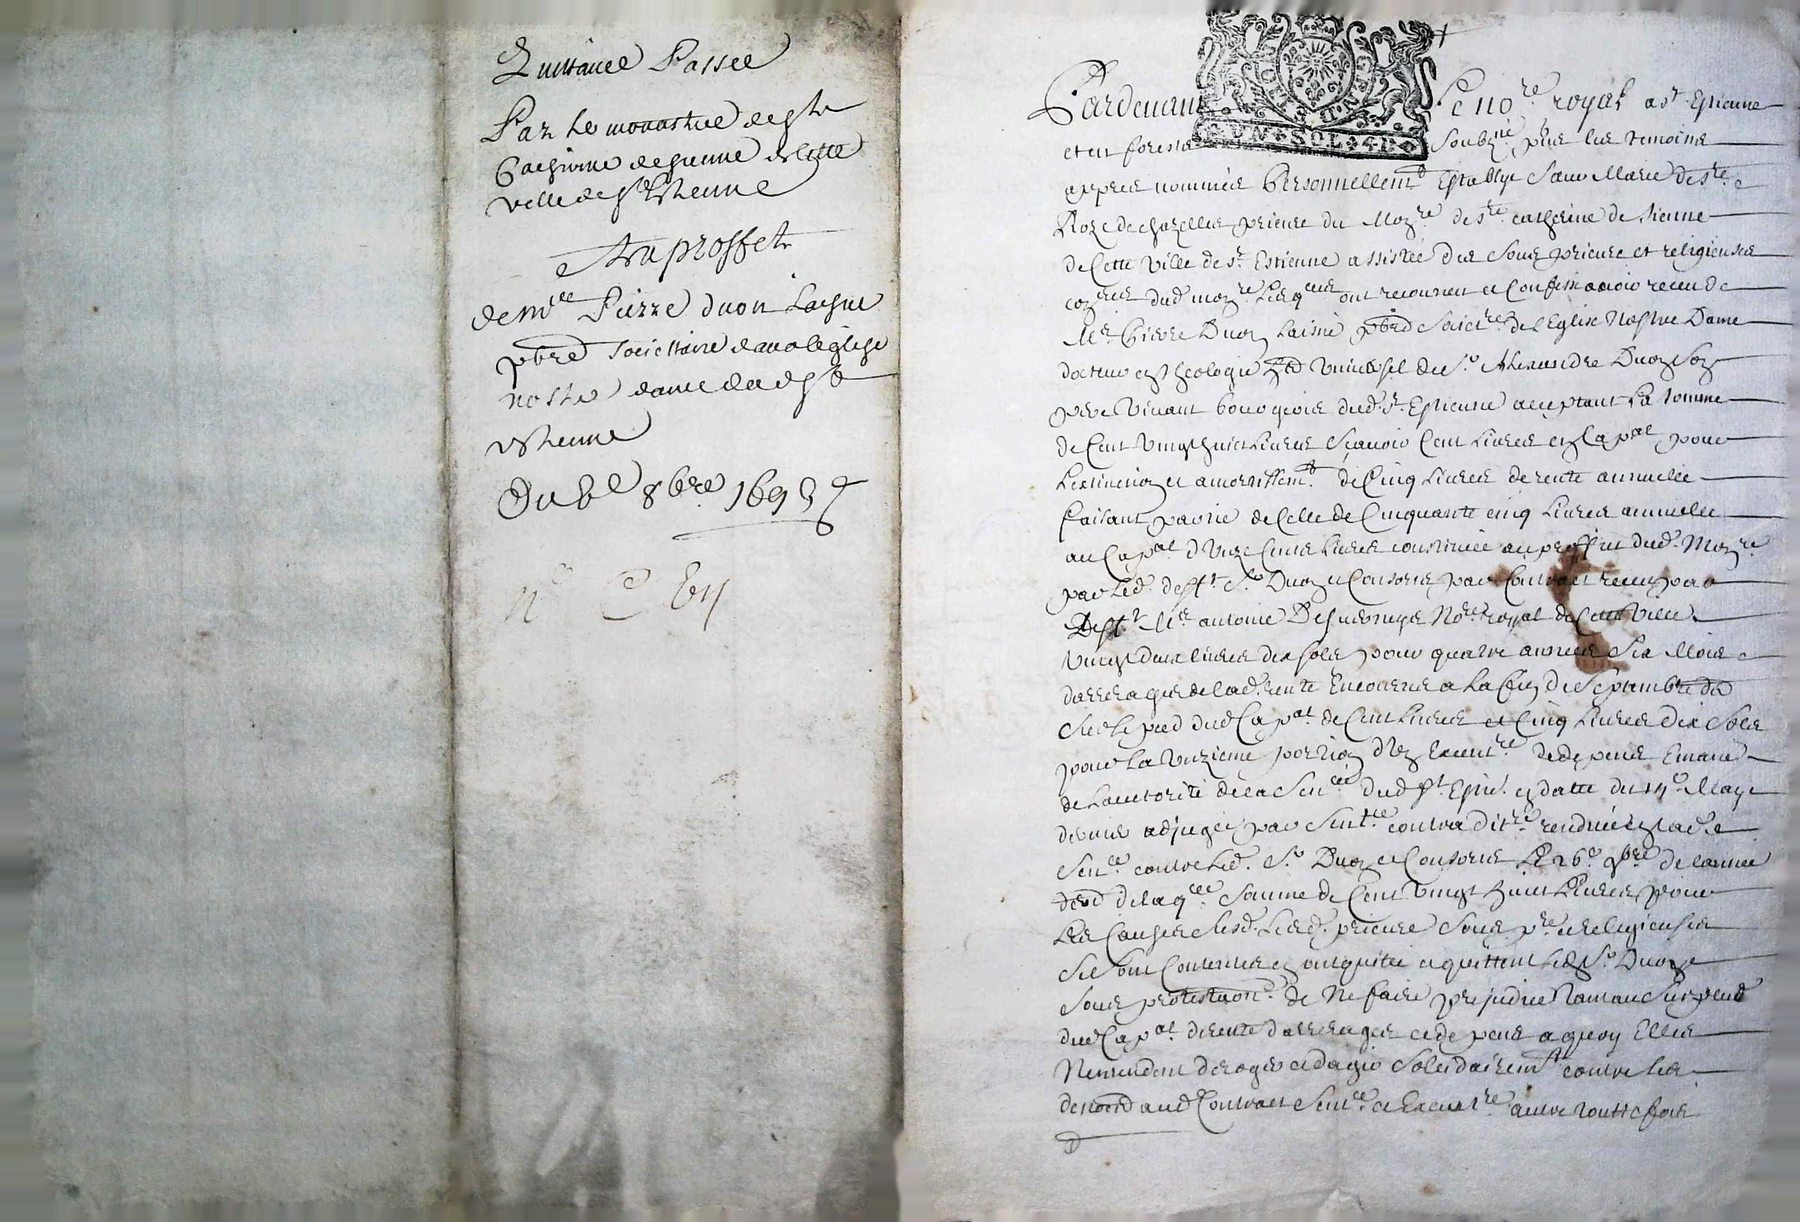 Quittance Passée
Par le monastere de ste
Catherine de sienne de cette
ville de st Estienne
Au proffet
de mre Pierre duon laisne
pbre societtaire dans leglise
nostre dame dudt st
Estienne
Du 8bre 1693
Pardevant Le nore royal a st Estienne
UN SOL
et en forests soubzné, pnts les temoins
appres nommés Personnellemt Establye Sœur Marie de ste
Roze de chazelles prieure du Mozre de ste catherine de sienne
de Cette Ville de st Estienne assistée des sœurs prieure et religieuses
dud mozre Lesqueles ont reconneu et Confessé avoir receu de
Mre Pierre Duon Laisné pbre Socictre de l'Eglise Nostre Dame
docteur en theologie du sr Alexandre Duon son
pere Vivant bourgeois dud. st Estienne acceptant La somme
de Cent Vingt huit Livres sçavoir Cent Livres en Capal pour
Lextinction et amortissemt de Cinq Livres de rente annuelle
faisant partie de Celle de Cinquante cinq Livres annuelle
au Capal d'Unze Cents Livres constituée au proffit dud. Mozre
par Led. defft sr Duon et Consorts par Contract receu par
Defft Mre antoine Nore royal de Cette Ville
Vingt deux livres dix sols pour quatre années Six Mois
darrerages de lad. rente Encourus a La fin de Septembre
sur le pied dud Capal de Cent Livres et Cinq Livres Dix Sols
pour La Unzieme portion d'un Executre de depens Emané
de Lautorité de la Senée dud st Estne en datte du Maye
dernier adjugés par Sentce contradictre rendue en lade
Senée contre Led. sr Duon et Consorts Le 26e de lannée
de laqlle somme de Cent Vingt huit Livres pour
Les Causes susd. Lesd. prieure sous pre et religieuses
se sont Contentées en ont quitté et quittent Led sr Duon
sous protestaon de Ne faire prejudice au surplus
dud Capal de rente darrerages et depens a quoy Elles
N'entendent deroger et dagir Solidairemt contre Les
aud Contract Sentce et Executre autre touttefois